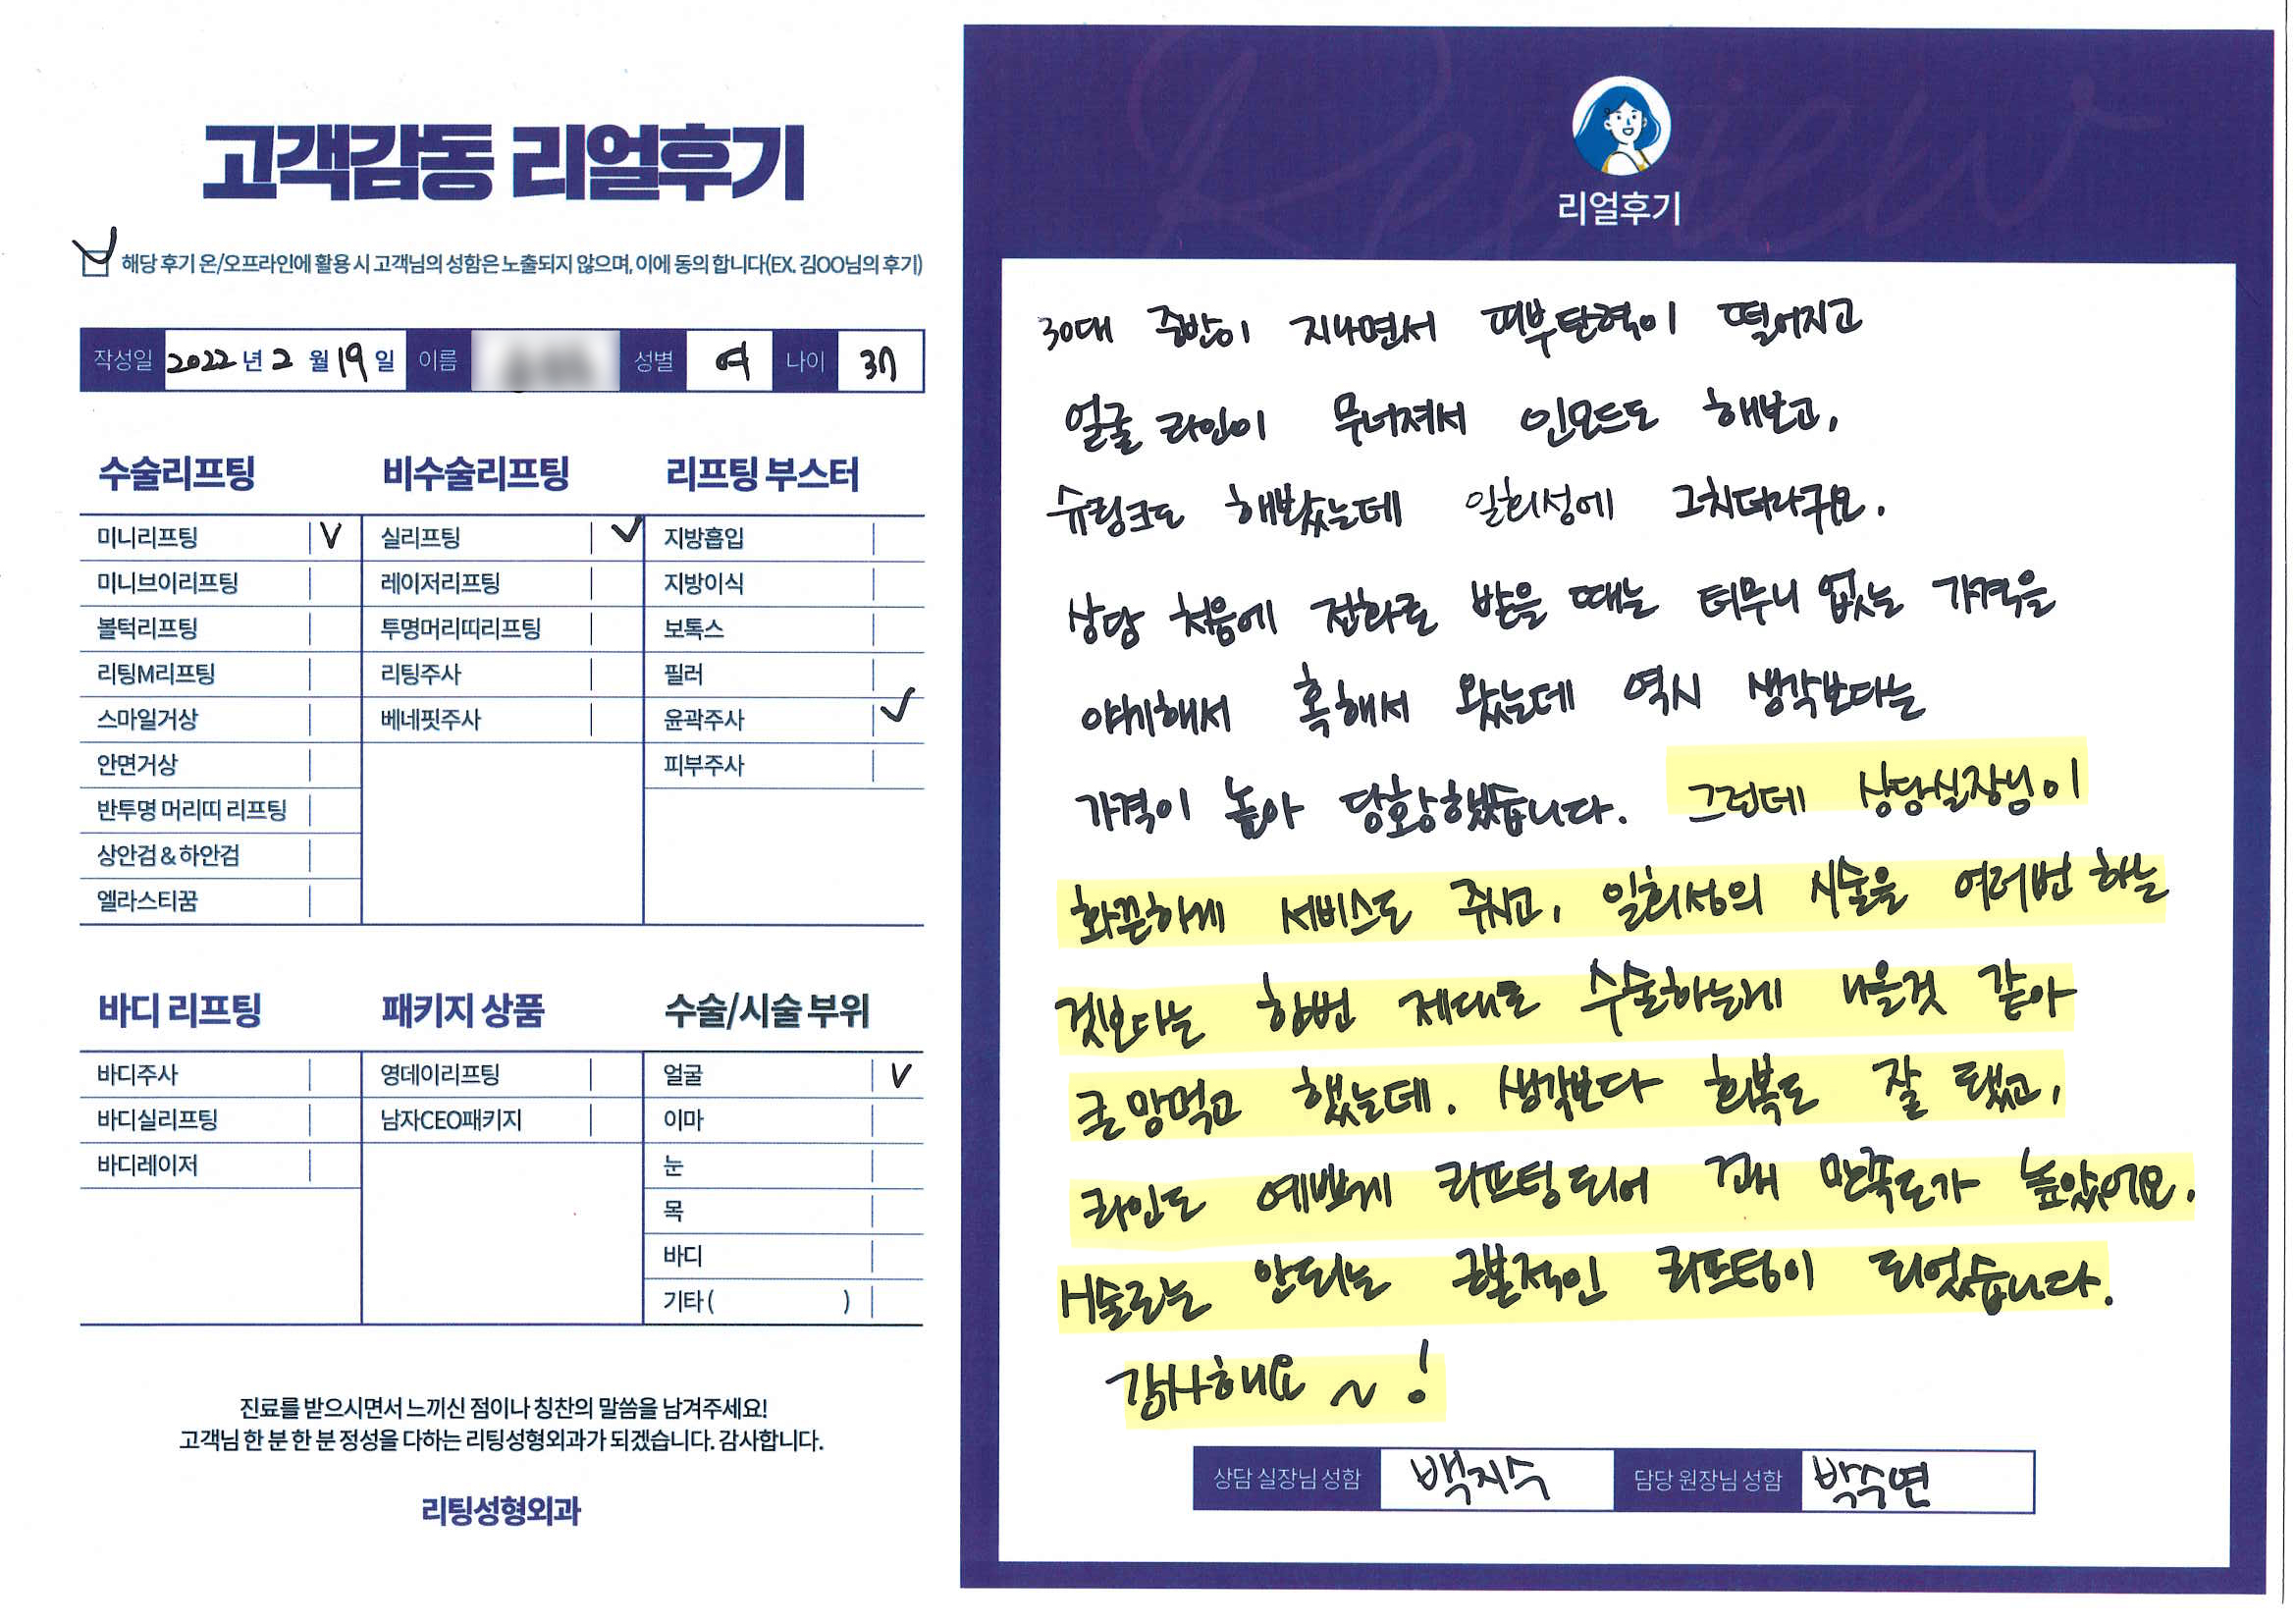 고객감동 리얼후기
해당 후기 온/오프라인에 활용 시 고객님의 성함은 노출되지 않으며, 이에 동의 합니다(EX. 김OO님의 후기)
작성일 2022 년 2 월 19 일 이름 성별 여 나이 37
수술리프팅 비수술리프팅 리프팅 부스터
미니리프팅 V 실리프팅 ✓ 지방흡입
미니브이리프팅 레이저리프팅 지방이식
볼턱리프팅 투명머리띠리프팅 보톡스
리팅M리프팅 리팅주사 필러
스마일거상 베네핏주사 윤곽주사 ✓
안면거상 피부주사
반투명 머리띠 리프팅
상안검 & 하안검
엘라스티꿈
바디 리프팅 패키지 상품 수술/시술 부위
바디주사 영데이리프팅 얼굴 V
바디실리프팅 남자CEO패키지 이마
바디레이저 눈
목
바디
기타 ( )
진료를 받으시면서 느끼신 점이나 칭찬의 말씀을 남겨주세요!
고객님 한 분 한 분 정성을 다하는 리팅성형외과가 되겠습니다. 감사합니다.
리팅성형외과
Review
리얼후기
30대 중반이 지나면서 피부탄력이 떨어지고
얼굴 라인이 무너져서 인모드도 해보고,
슈링크도 해봤는데 일회성에 그치더라구요.
상담 처음에 전화로 받을 때는 터무니 없는 가격을
얘기해서 혹해서 왔는데 역시 생각보다는
가격이 높아 당황했습니다. 그런데 상담실장님이
화끈하게 서비스도 주시고, 일회성의 시술을 여러번 하는
것보다는 한번 제대로 수술하는게 나을것 같아
큰 맘먹고 했는데. 생각보다 회복도 잘 됐고,
라인도 예쁘게 리프팅되어 꽤 만족도가 높았어요.
시술로는 안되는 근본적인 리프팅이 되었습니다.
감사해요 ~ !
상담 실장님 성함 백지수 담당 원장님 성함 박수연